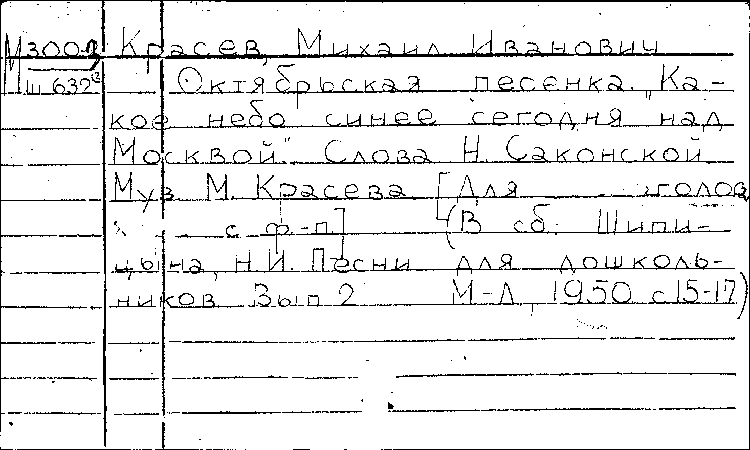 М3002 Красев, Михаил Иванович
Ш 632 Октябрьская песенка. „Ка-
кое небо синее сегодня над
Москвой". Слова Н. Саконской
Муз М. Красева [Для голов
с ф-п] (В сб: Шипи-
цына, Н.И. Песни для дошколь-
ников Вып 2 М-Л, 1950 с 15-17)